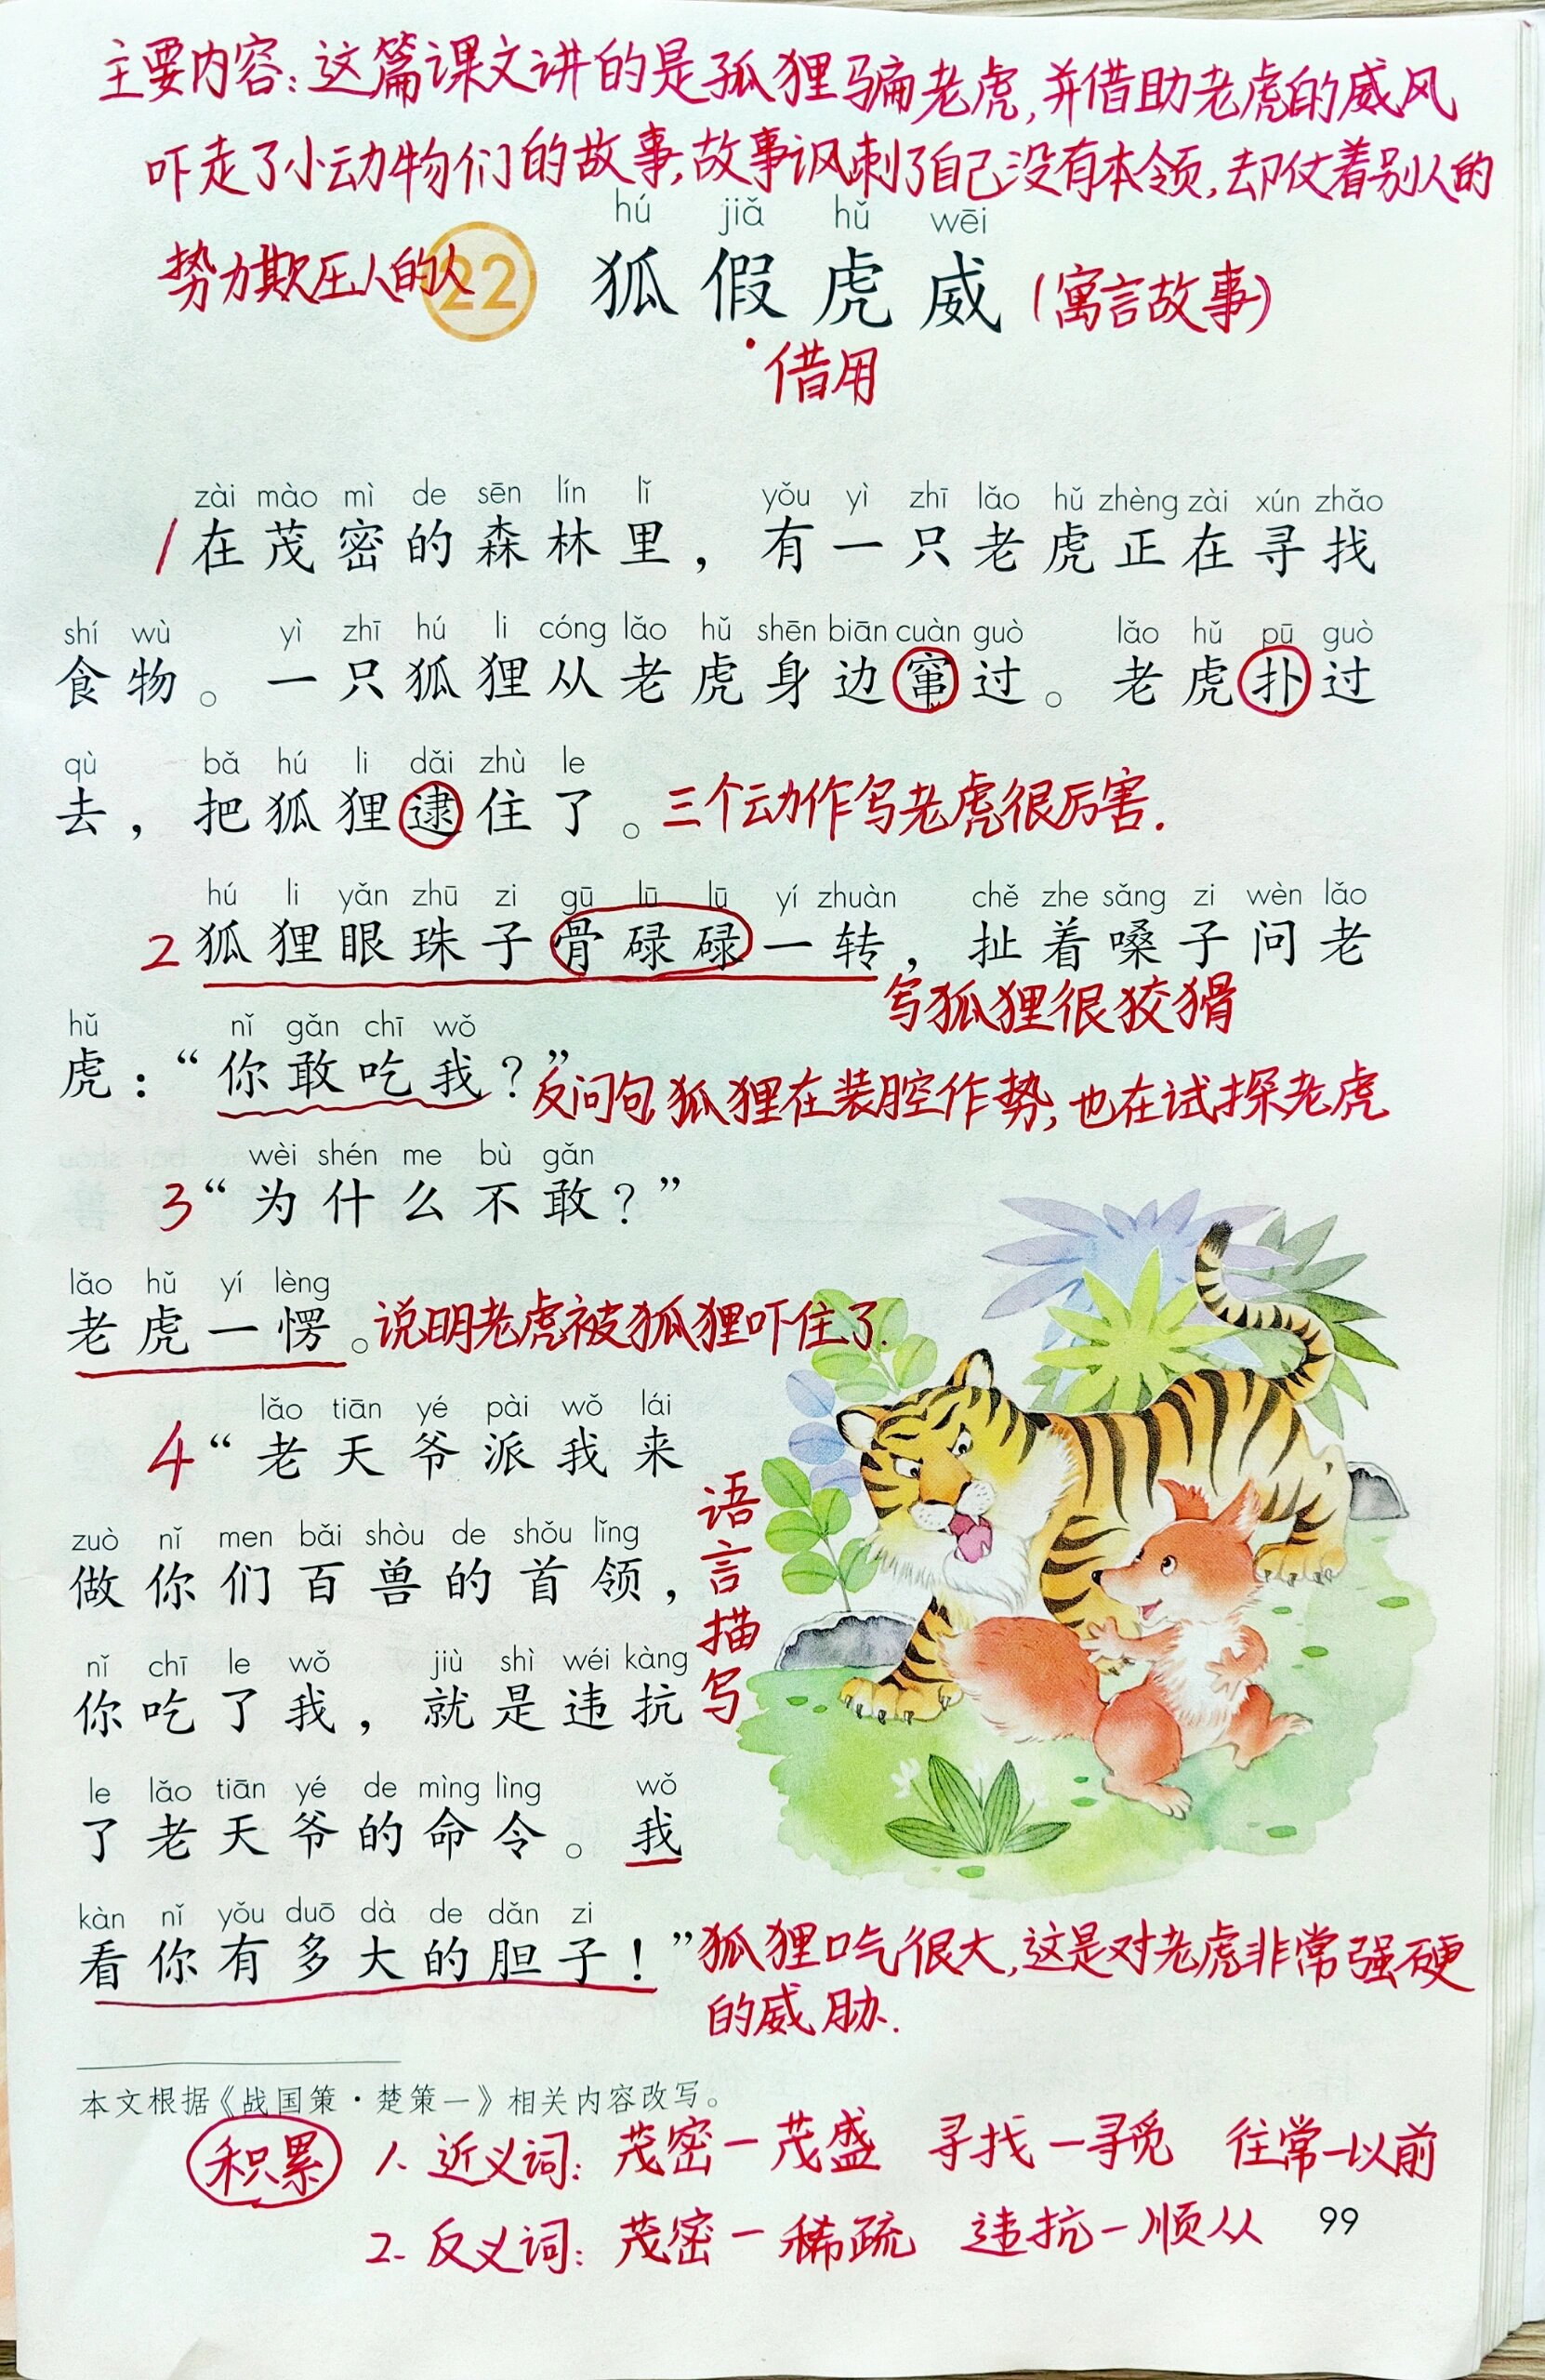 主要内容:这篇课文讲的是狐狸骗老虎,并借助老虎的威风
吓走了小动物们的故事,故事讽刺了自己没有本领,却仗着别人的
势力欺压人的人
hú jiǎ hǔ wēi
22 狐假虎威 (寓言故事)
借用
zài mào mì de sēn lín lǐ yǒu yì zhī lǎo hǔ zhèng zài xún zhǎo
1 在茂密的森林里,有一只老虎正在寻找
shí wù yì zhī hú li cóng lǎo hǔ shēn biān cuàn guò lǎo hǔ pū guò
食物。一只狐狸从老虎身边窜过。老虎扑过
qù bǎ hú li dǎi zhù le
去,把狐狸逮住了。三个动作写老虎很厉害.
hú li yǎn zhū zi gū lū lū yí zhuàn chě zhe sǎng zi wèn lǎo
2 狐狸眼珠子骨碌碌一转,扯着嗓子问老
写狐狸很狡猾
hǔ nǐ gǎn chī wǒ
虎:“你敢吃我?”反问句,狐狸在装腔作势,也在试探老虎
wèi shén me bù gǎn
3“为什么不敢?”
lǎo hǔ yí lèng
老虎一愣。说明老虎被狐狸吓住了.
lǎo tiān yé pài wǒ lái
4“老天爷派我来
zuò nǐ men bǎi shòu de shǒu lǐng
做你们百兽的首领,
nǐ chī le wǒ jiù shì wéi kàng
你吃了我,就是违抗
语言描写
le lǎo tiān yé de mìng lìng wǒ
了老天爷的命令。我
kàn nǐ yǒu duō dà de dǎn zi
看你有多大的胆子!”狐狸口气很大,这是对老虎非常强硬
的威胁.
本文根据《战国策·楚策一》相关内容改写。
积累 1. 近义词: 茂密—茂盛 寻找—寻觅 往常—以前
99
2. 反义词: 茂密—稀疏 违抗—顺从